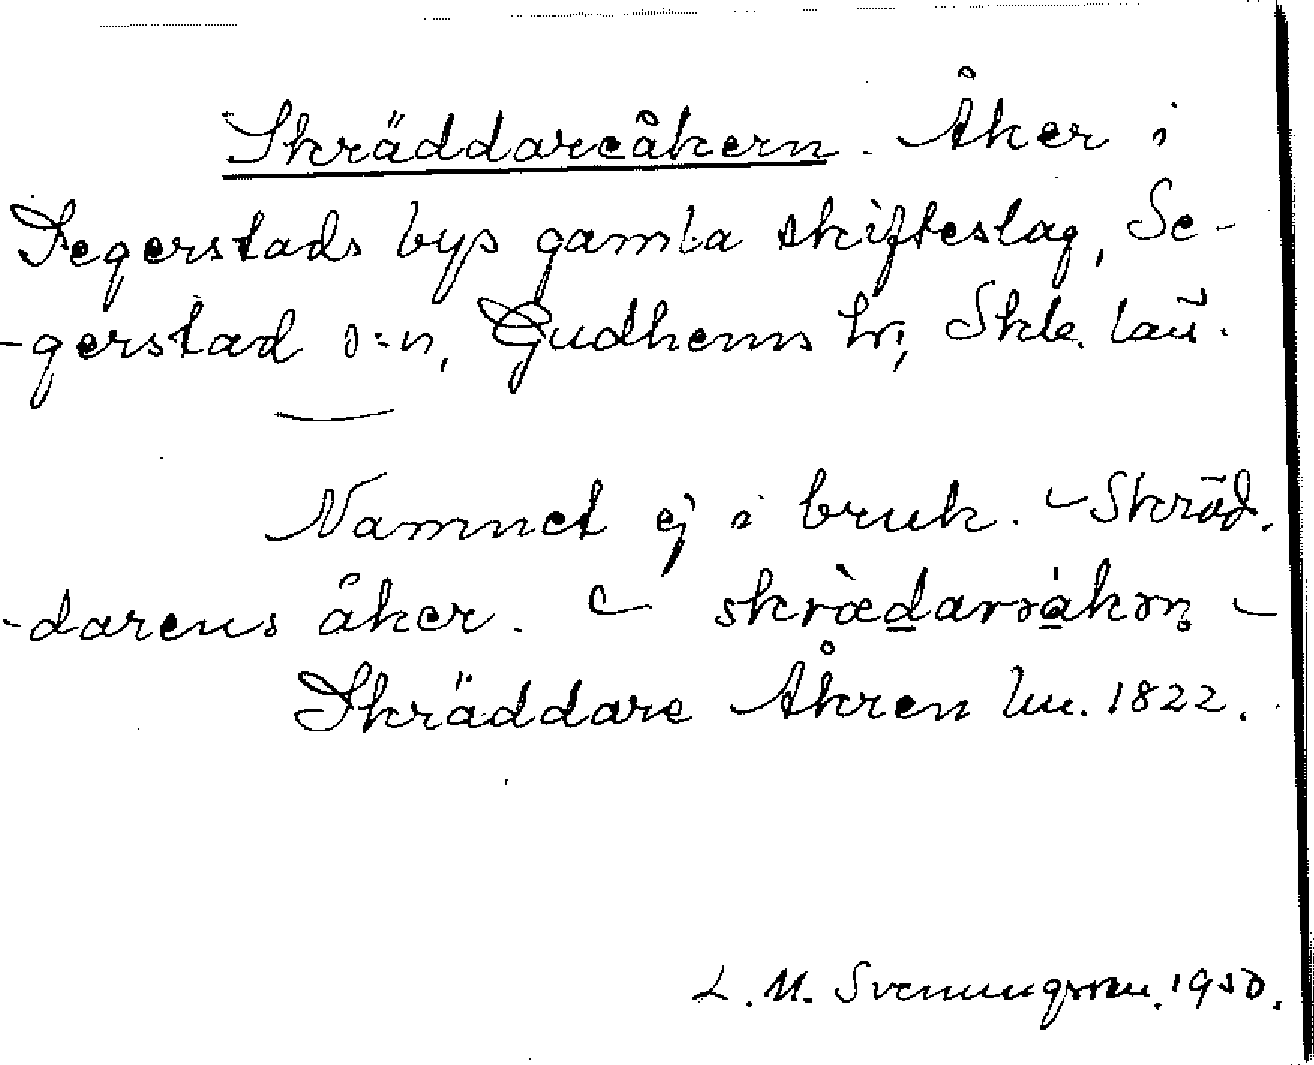 Skräddareåkern. Åker i
Segerstads bys gamla skifteslag, Se-
-gerstad s:n, Gudhems hd, Skbg. län.
Namnet ej i bruk. – Skräd-
-darens åker. –
Skräddare Åkren lm. 1822.
L. M. Svenungsson. 1950.